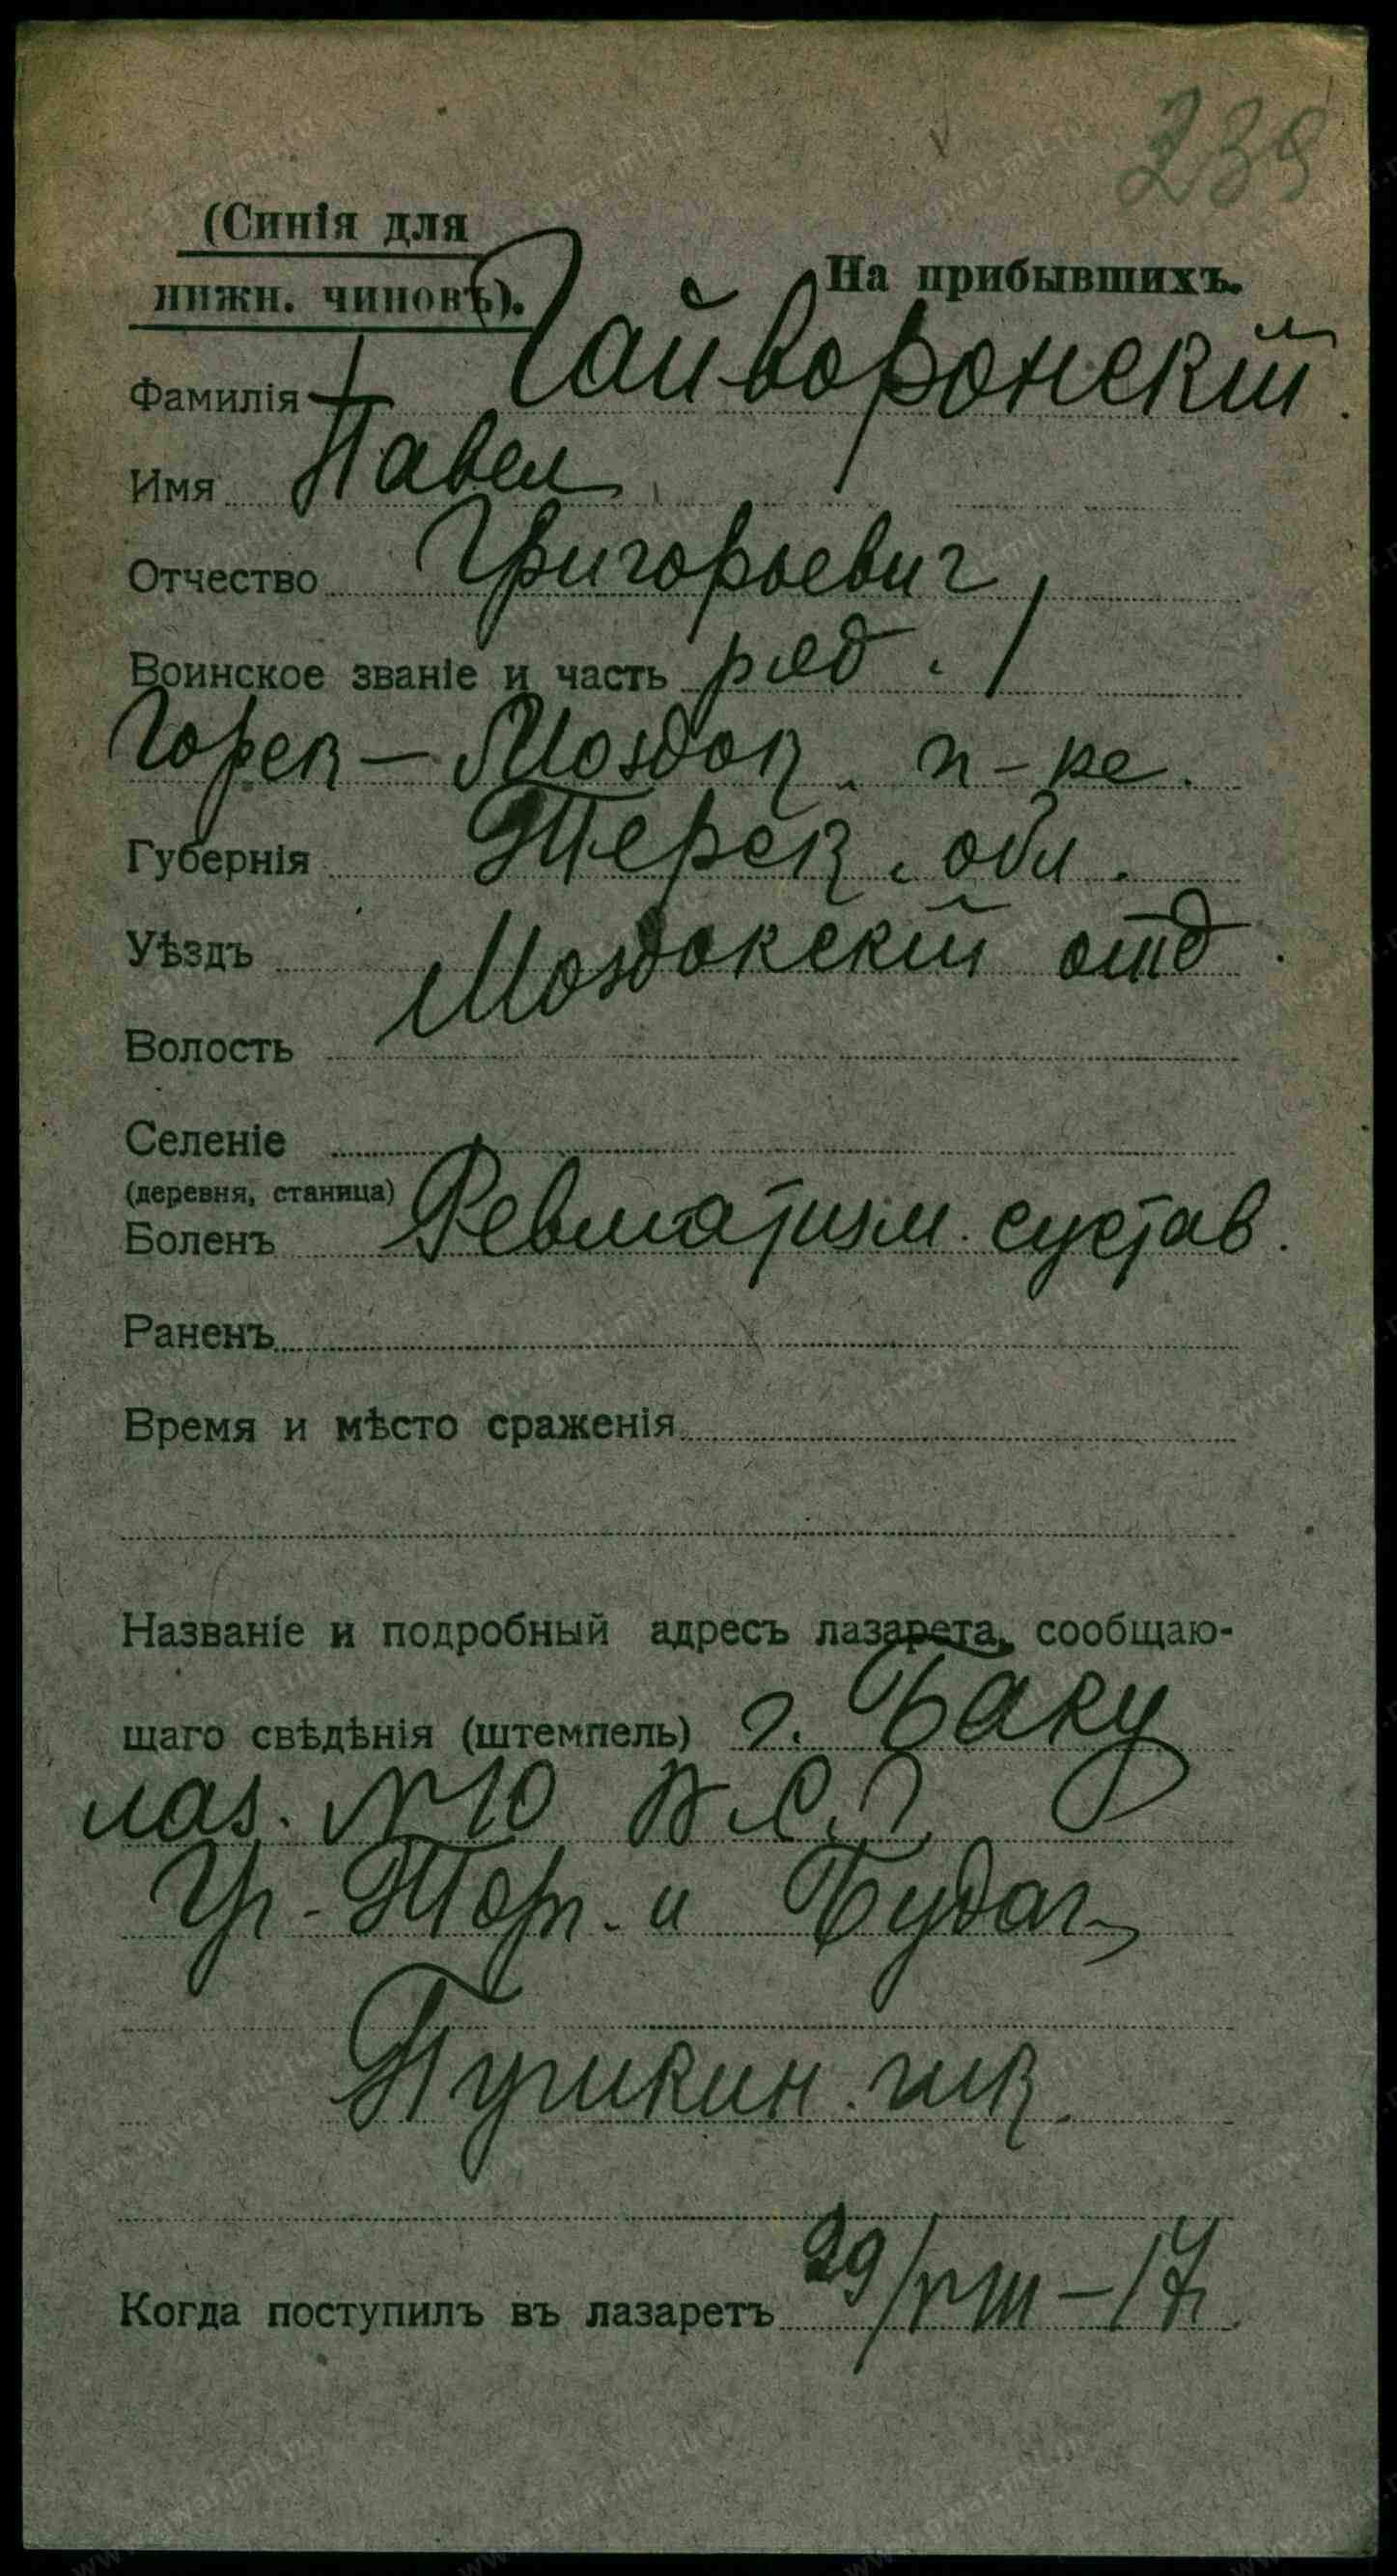 239
(Синія для
нижн. чиновъ).
На прибывшихъ.
Фамилія Гайворонскій
Имя Павел
Отчество Григорьевич
Воинское званіе и часть ряд. 1
Горск-Моздок. п-ка.
Губернія Терск. обл.
Уѣздъ Моздокскій отд.
Волость
Селеніе
(деревня, станица)
Боленъ Ревматизм. сустав.
Раненъ
Время и мѣсто сраженія
Названіе и подробный адресъ лазарета, сообщаю-
щаго свѣдѣнія (штемпель) г. Баку
лаз. №10 В.С.Г.
Уг. Торг. и Будаг.
Пушкин. шк.
Когда поступилъ въ лазаретъ 29/VIII-17